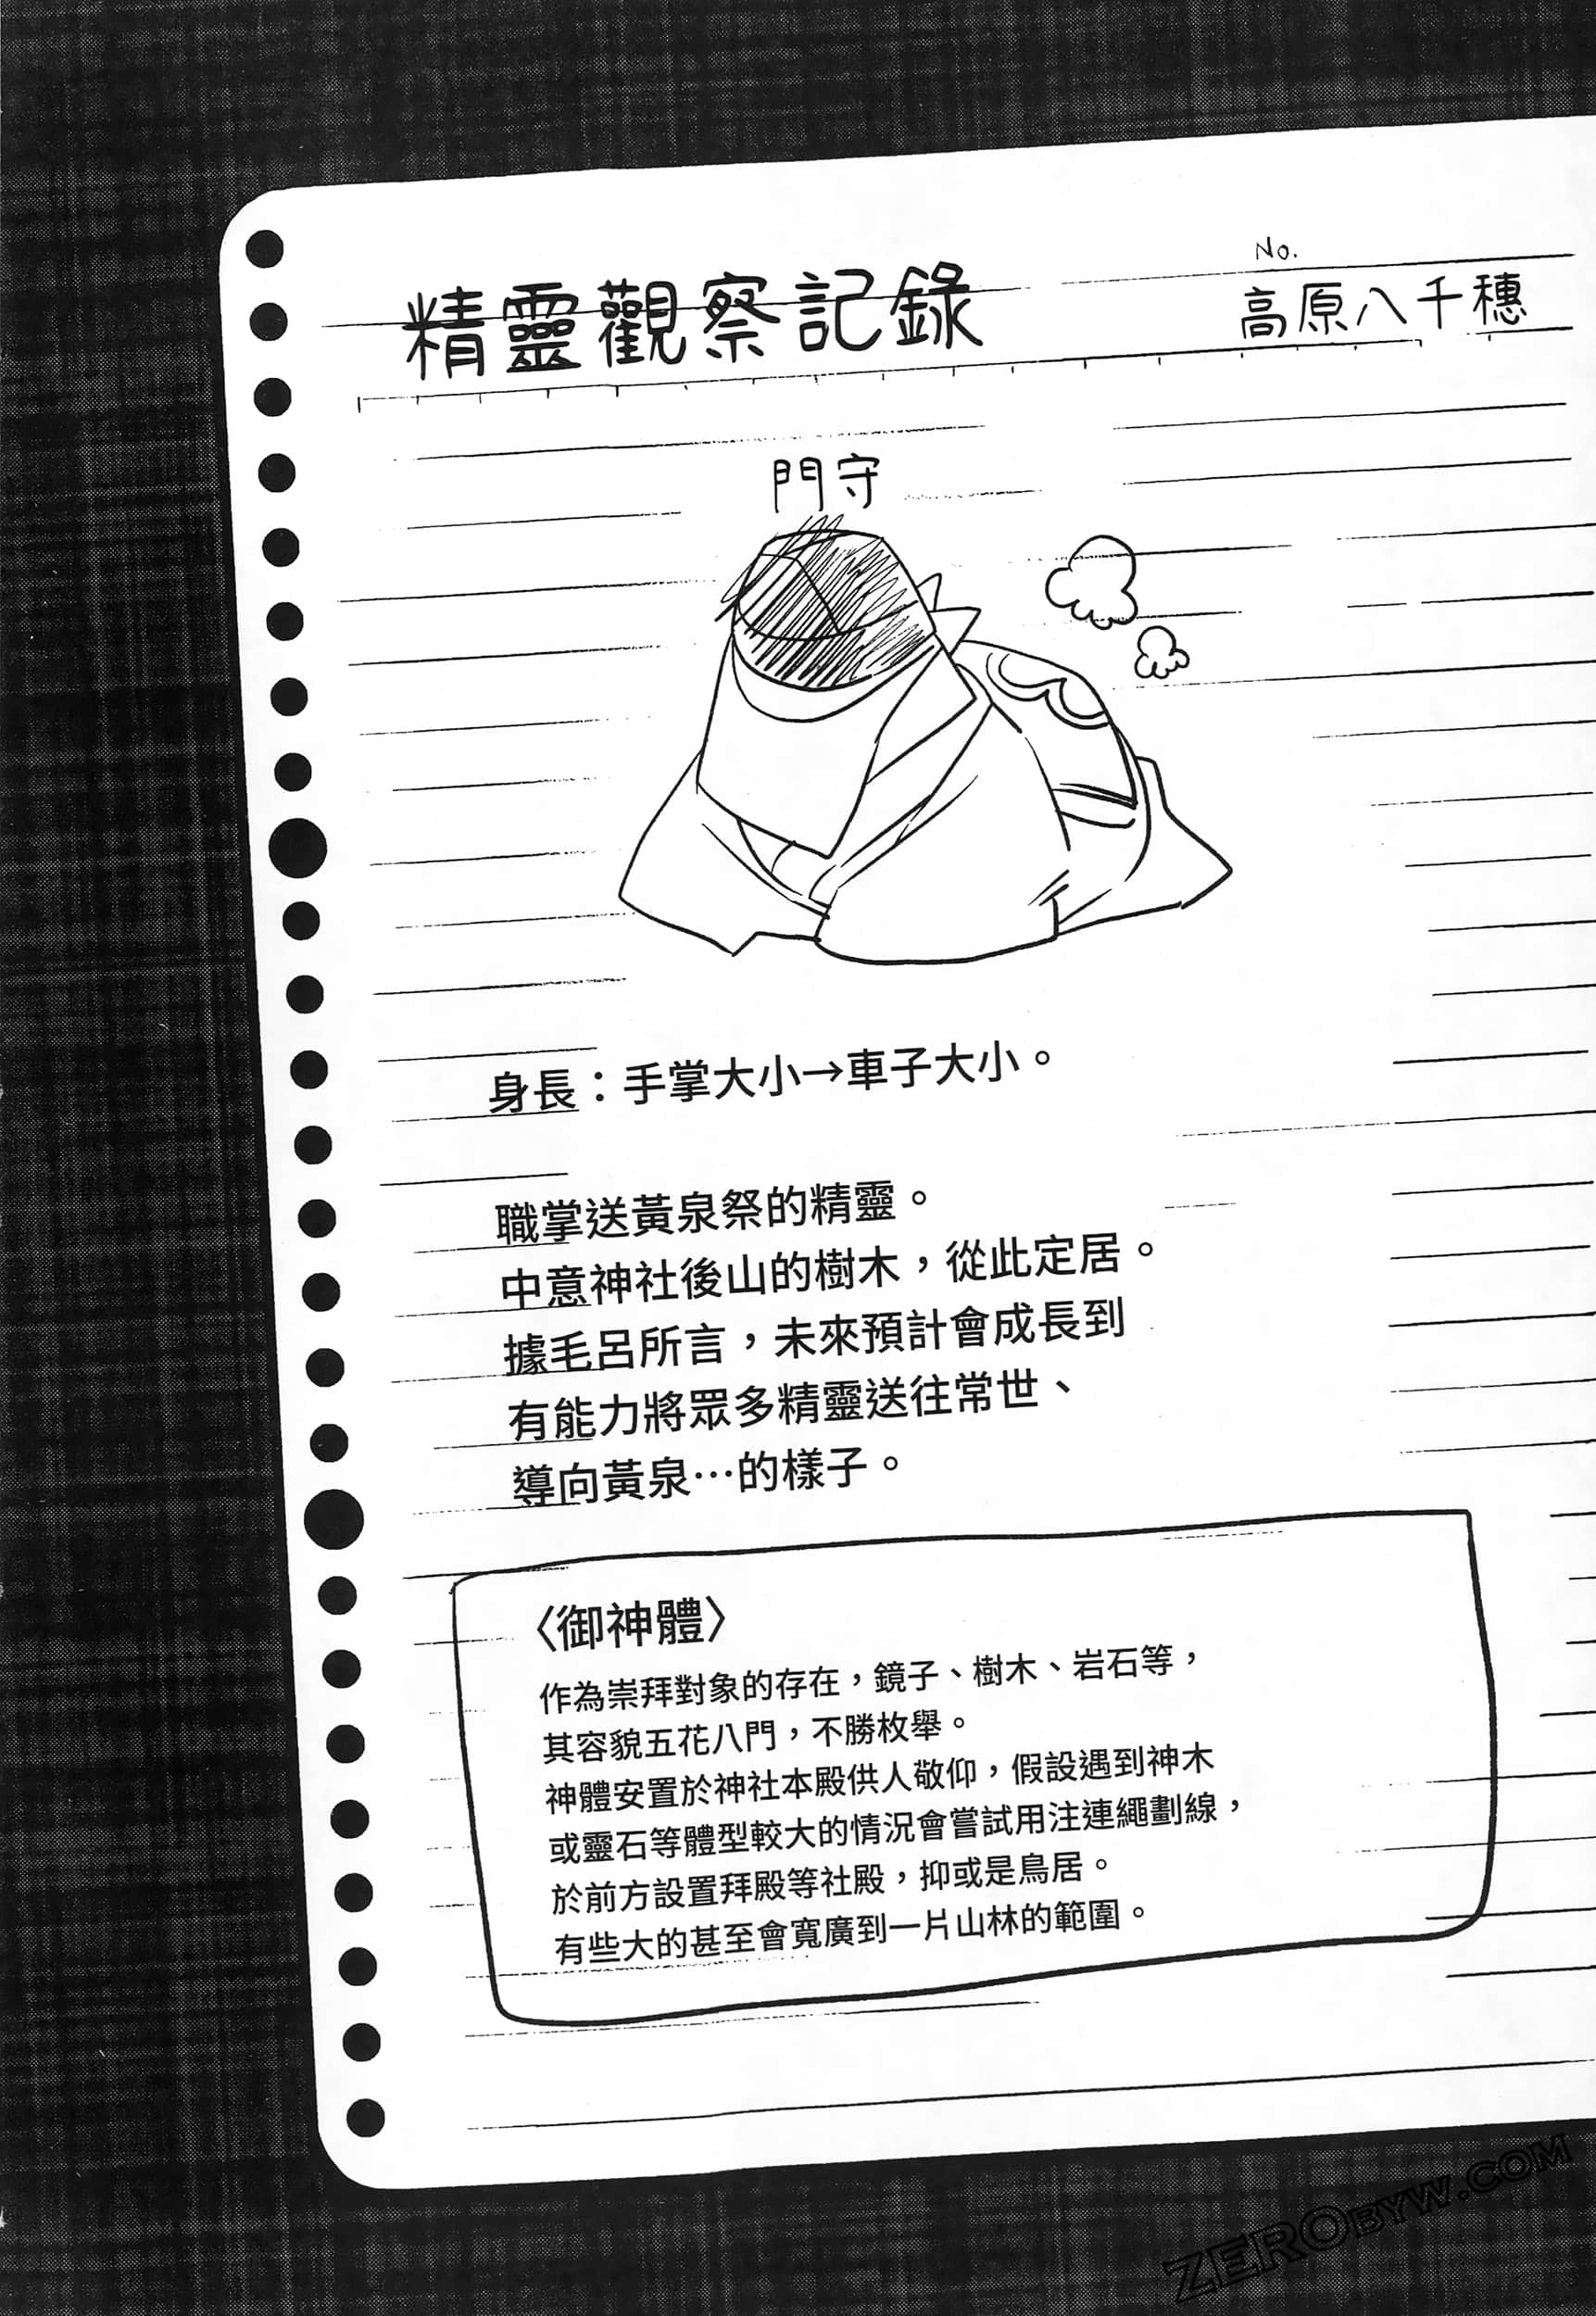 No.
精靈觀察記錄
高原八千穗
門守
身長：手掌大小→車子大小。
職掌送黃泉祭的精靈。
中意神社後山的樹木，從此定居。
據毛呂所言，未來預計會成長到
有能力將眾多精靈送往常世、
導向黃泉…的樣子。
〈御神體〉
作為崇拜對象的存在，鏡子、樹木、岩石等，
其容貌五花八門，不勝枚舉。
神體安置於神社本殿供人敬仰，假設遇到神木
或靈石等體型較大的情況會嘗試用注連繩劃線，
於前方設置拜殿等社殿，抑或是鳥居。
有些大的甚至會寬廣到一片山林的範圍。
ZEROBYW.COM